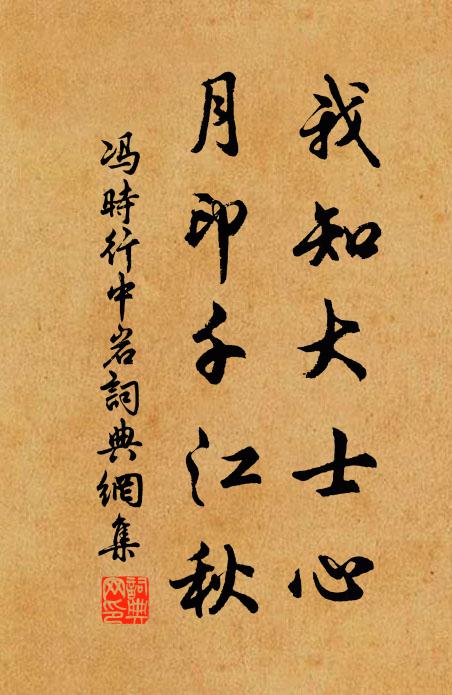 我知大士心
月印千江秋
冯時行中岩詞典網集
詞典
网印